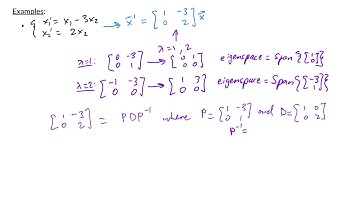 Examples:
• { x₁' = x₁ - 3x₂
x₂' = 2x₂
→ x⃗' = [1 -3; 0 2] x⃗
λ = 1, 2
λ=1: [0 -3; 0 1] → [0 1; 0 0] eigenspace = Span {[1; 0]}
λ=2: [-1 -3; 0 0] → [1 3; 0 0] eigenspace = Span {[-3; 1]}
[1 -3; 0 2] = PDP⁻¹ where P = [1 -3; 0 1] and D = [1 0; 0 2]
P⁻¹ =